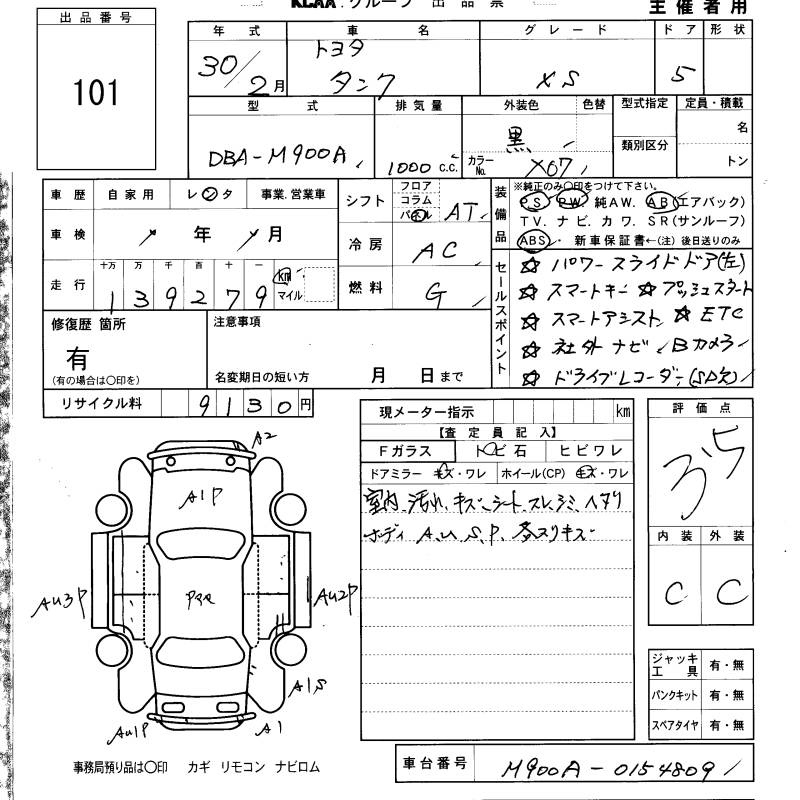 KCAA.グループ 出品票
主催者用
出品番号
101
年式 車名 グレード ドア 形状
30/2月 トヨタ タンク XS 5
型式 排気量 外装色 色替 型式指定 定員・積載
類別区分 名
トン
DBA-M900A 1000 c.c. 黒 カラーNo. X07
車歴 自家用 レンタ 事業.営業車
車検 年 月
走行 十万 万 千 百 十 一
139279 km マイル
シフト フロア コラム パネル AT
冷房 AC
燃料 G
装備品
※純正のみ○印をつけて下さい。
PS PW 純AW. AB(エアバック)
TV. ナビ. カワ. SR(サンルーフ)
ABS・ 新車保証書←(注)後日送りのみ
セールスポイント
☆ パワースライドドア(左)
☆ スマートキー ☆ プッシュスタート
☆ スマートアシスト ☆ ETC
☆ 社外ナビ Bカメラ
☆ ドライブレコーダー(SD欠)
修復歴 箇所
有
(有の場合は○印を)
注意事項
名変期日の短い方 月 日まで
リサイクル料 9130円
現メーター指示 km
【査定員記入】
Fガラス トビ石 ヒビワレ
ドアミラー キズ・ワレ ホイール(CP) キズ・ワレ
室内 汚れ、キズ、シート、スレ、シミ、ヘタリ
ボディ A.U.S.P. 各スリキズ
評価点
3.5
内装 外装
C C
ジャッキ工具 有・無
パンクキット 有・無
スペアタイヤ 有・無
A2
A1P
AU3P
AU2P
A1S
AU1P
A1
事務局預り品は○印 カギ リモコン ナビロム
車台番号 M900A-0154809